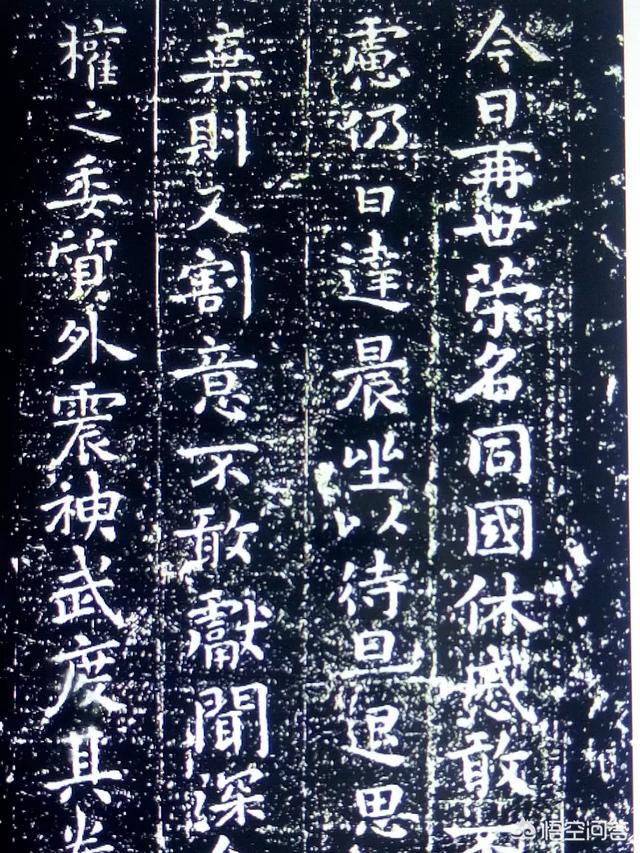 今日再世榮名同國休慼敢不
慮仍日達晨坐以待旦退思
棄則又割意不敢獻聞深
權之委質外震神武度其拳
悟空问答